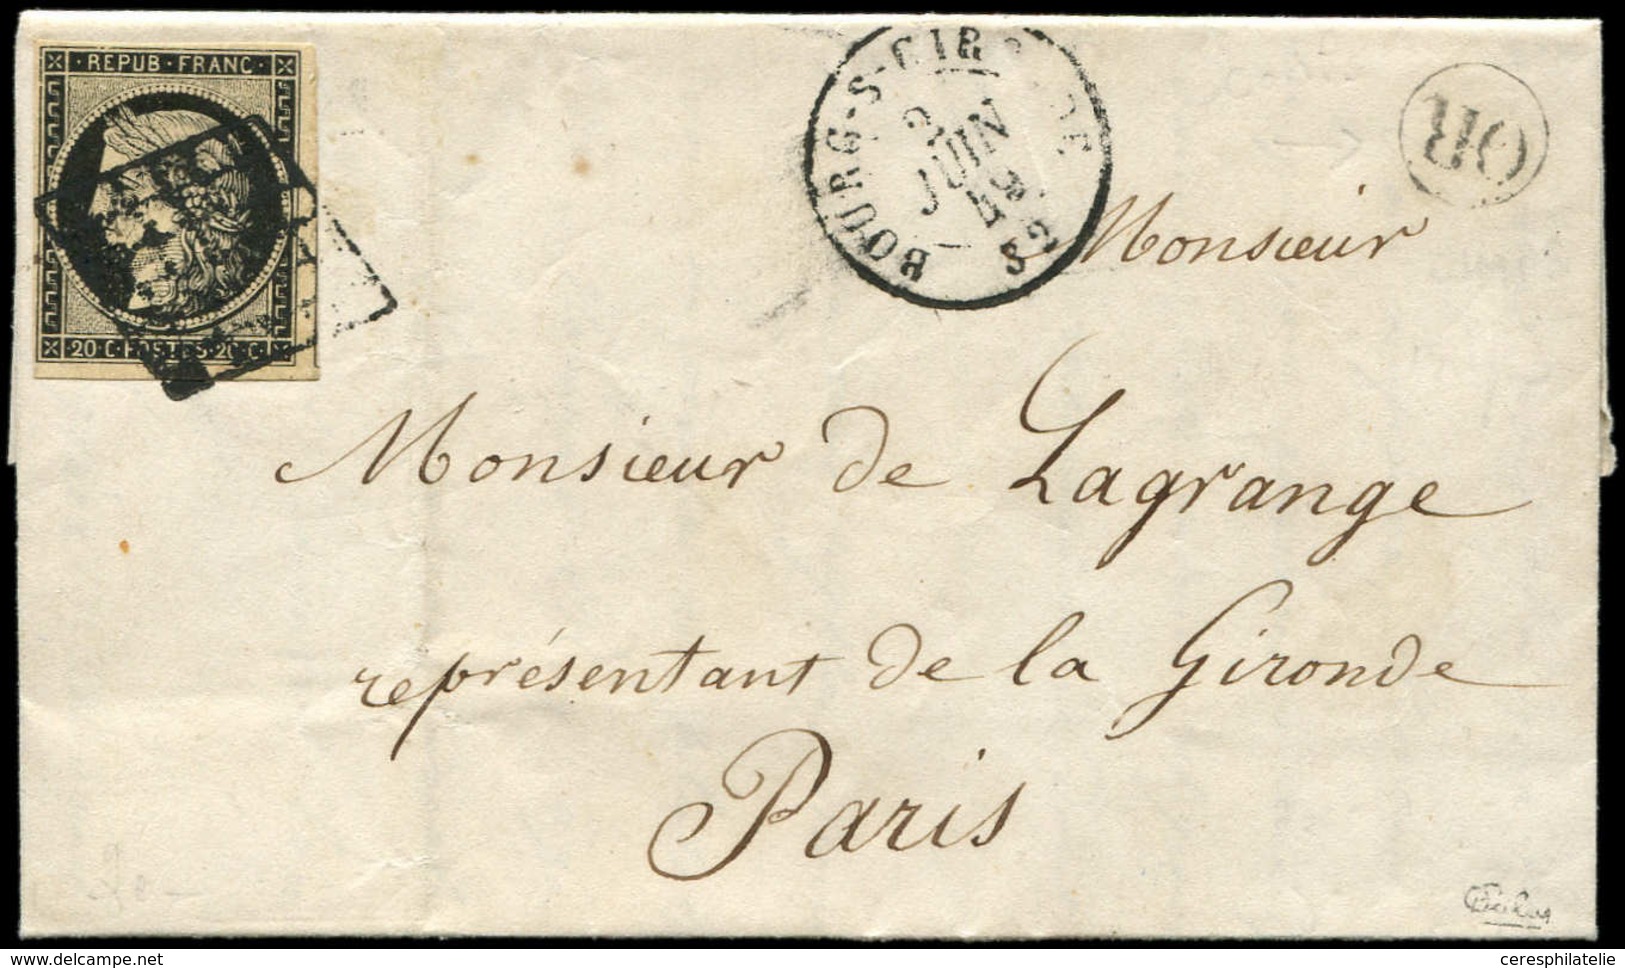 REPUB·FRANC·
20·C·POSTES·20·C·
BOURG-S-GIRONDE
2
JUIN
49
32
OR
Monsieur
Monsieur de Lagrange
représentant de la Gironde
Paris
delcampe.net
ceresphilatelie